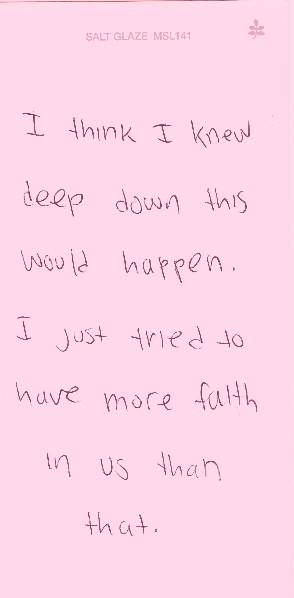 SALT GLAZE MSL141
I think I knew
deep down this
would happen.
I just tried to
have more faith
in us than
that.